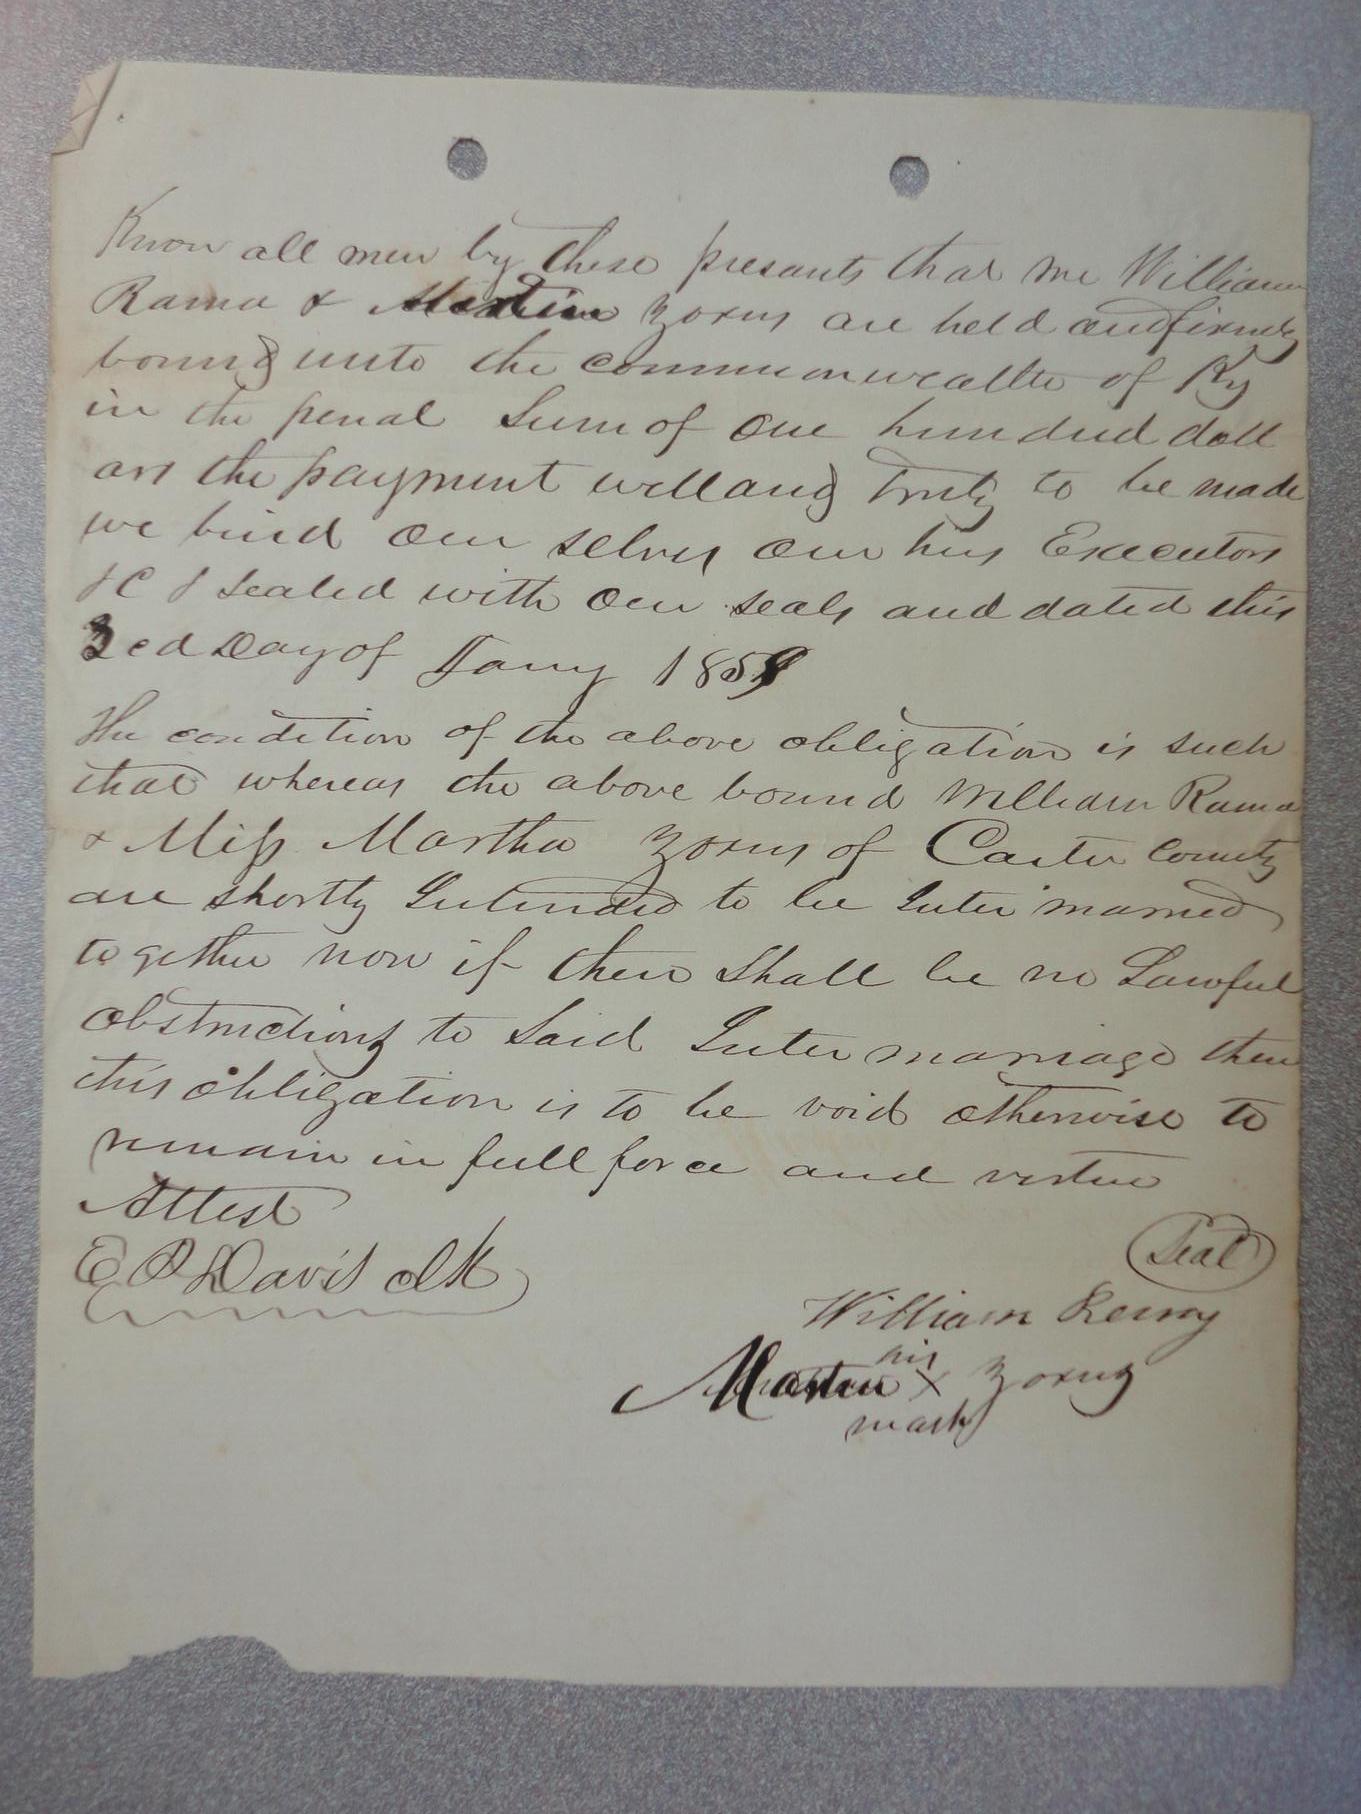 Know all men by these presants that we William
Rama & Martin Zorns are held and firmly
bound unto the commonwealth of Ky
in the penal Sum of One hundred doll
ars the payment well and Truly to be made
we bind Our selves Our hirs Executors
&C & Sealed with Our seals and dated this
3ed Day of Jany 1859
The condition of the above obligation is such
that whereas the above bound William Rama
& Miss Martha Zorns of Carter County
are shortly Intended to be Inter married
to gether now if there Shall be no Lawful
obstructions to Said Inter marriage then
this obligation is to be void otherwise to
remain in full force and vertue
Attest
E P Davis clk
Seal
William
his
Martin X Zorns
mark